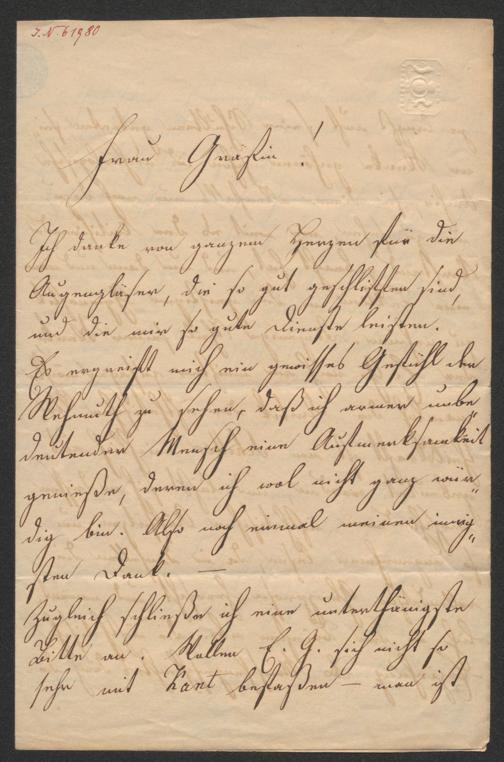 J. N. 61980
Frau Gräfin!
Ich danke von ganzem Herzen für die
Augengläser, die so gut geschliffen sind,
und die mir so gute Dienste leisten.
Es ergreift mich ein gewisses Gefühl der
Wehmuth zu sehen, daß ich armer unbe„
deutender Mensch eine Aufmerksamkeit
genieße, deren ich wol nicht ganz wür„
dig bin. Also noch einmal meinen innig„
sten Dank. —
Zugleich schließe ich eine unterthänigste
Bitte an. Wollen E. G. sich nicht so
sehr mit Kant befaßen — man ist